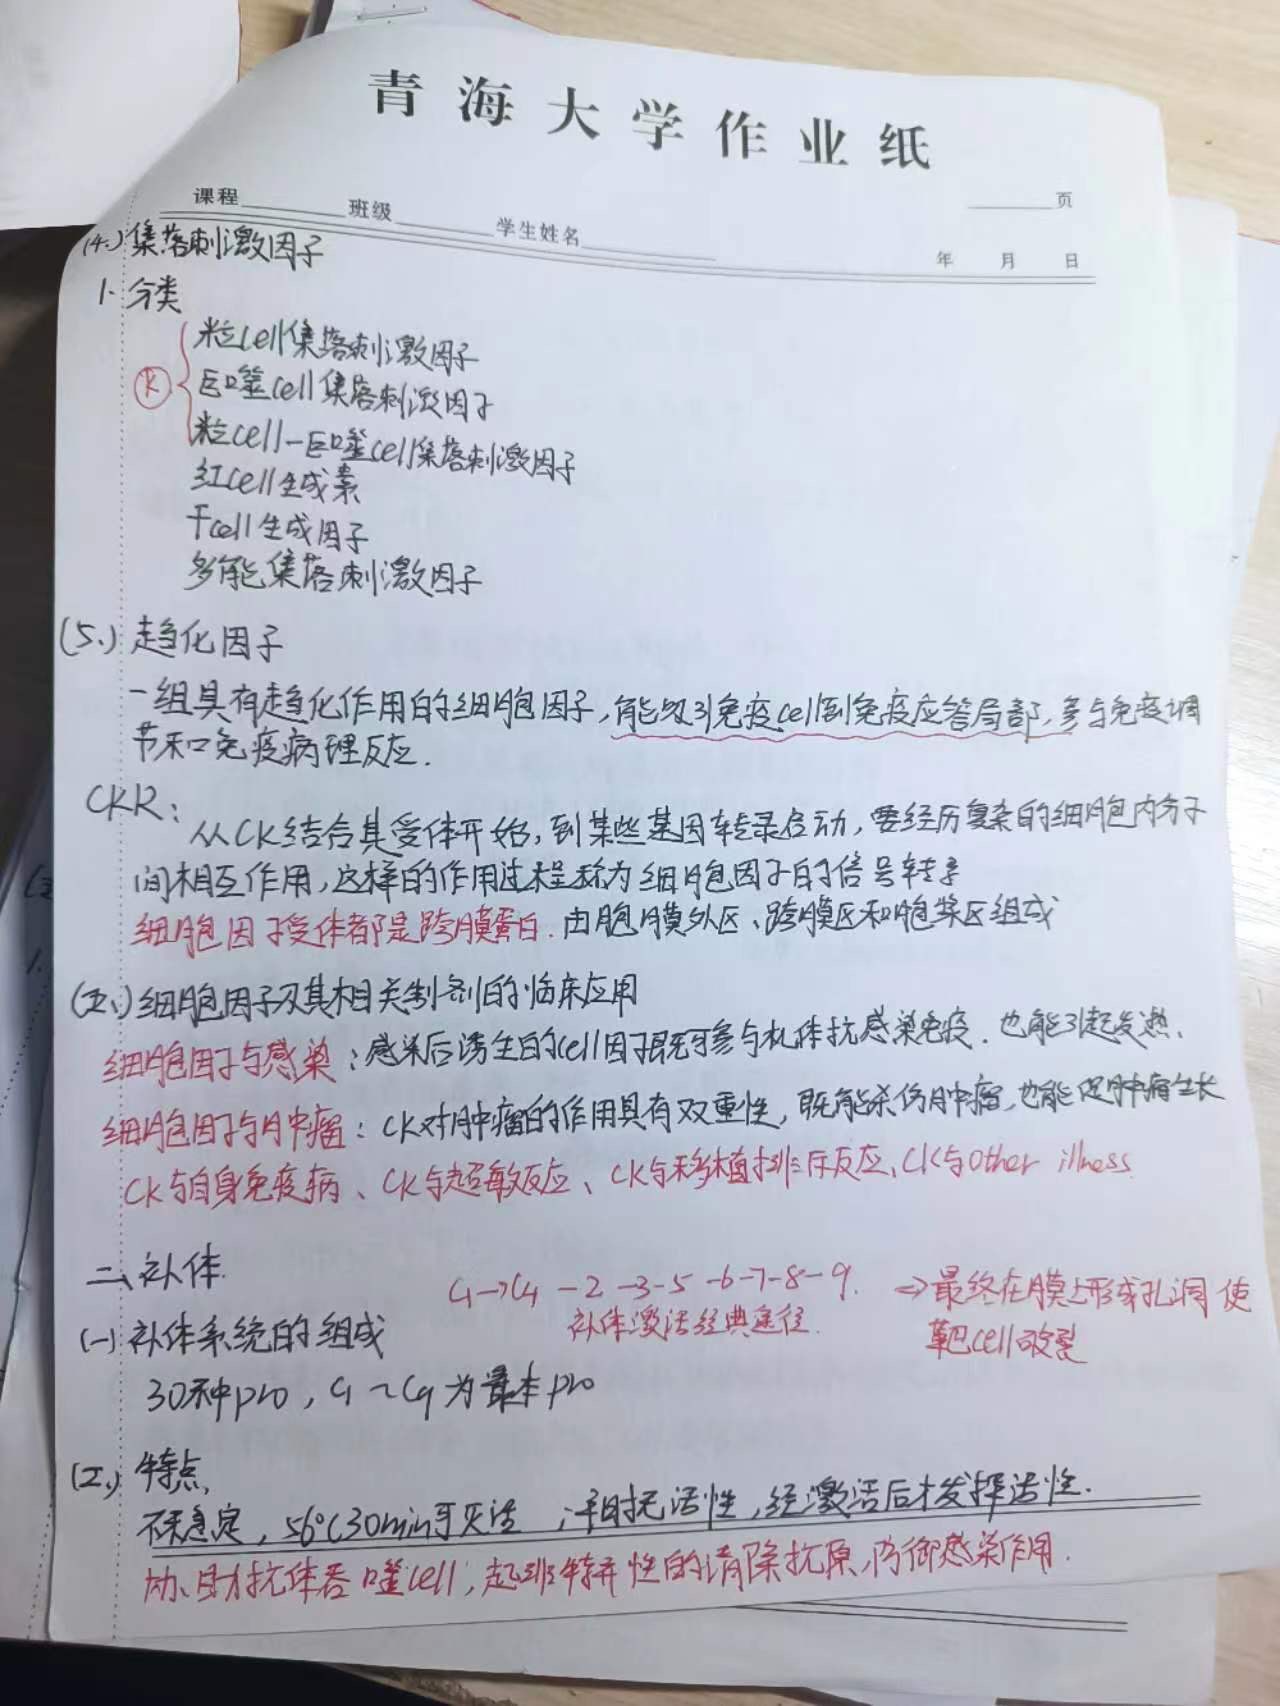 青海大学作业纸
课程 班级 学生姓名 页
年 月 日
(4.) 集落刺激因子
1. 分类
K
粒cell集落刺激因子
巨噬cell集落刺激因子
粒cell-巨噬cell集落刺激因子
红cell生成素
干cell生成因子
多能集落刺激因子
(5.) 趋化因子
一组具有趋化作用的细胞因子,能吸引免疫cell到免疫应答局部,参与免疫调
节和免疫病理反应.
CKR:
从CK结合其受体开始,到某些基因转录启动,要经历复杂的细胞内分子
间相互作用,这样的作用过程称为细胞因子的信号转导
细胞因子受体都是跨膜蛋白.由胞膜外区、跨膜区和胞浆区组成
(五、) 细胞因子及其相关制剂的临床应用
细胞因子与感染:感染后诱生的cell因子既可参与机体抗感染免疫.也能引起发热.
细胞因子与肿瘤:CK对肿瘤的作用具有双重性,既能杀伤肿瘤,也能促肿瘤生长
CK与自身免疫病、CK与超敏反应、CK与移植排斥反应、CK与other illness
二、补体.
C1→C4-2-3-5-6-7-8-9. →最终在膜上形成孔洞使
补体激活经典途径. 靶cell破裂
(一) 补体系统的组成
30种pro, C1~C9为最本pro
(二.) 特点,
不稳定,56℃30min可灭活 ;平时无活性,经激活后才发挥活性.
抗体吞噬cell,起非特异性的清除抗原,防御感染作用.